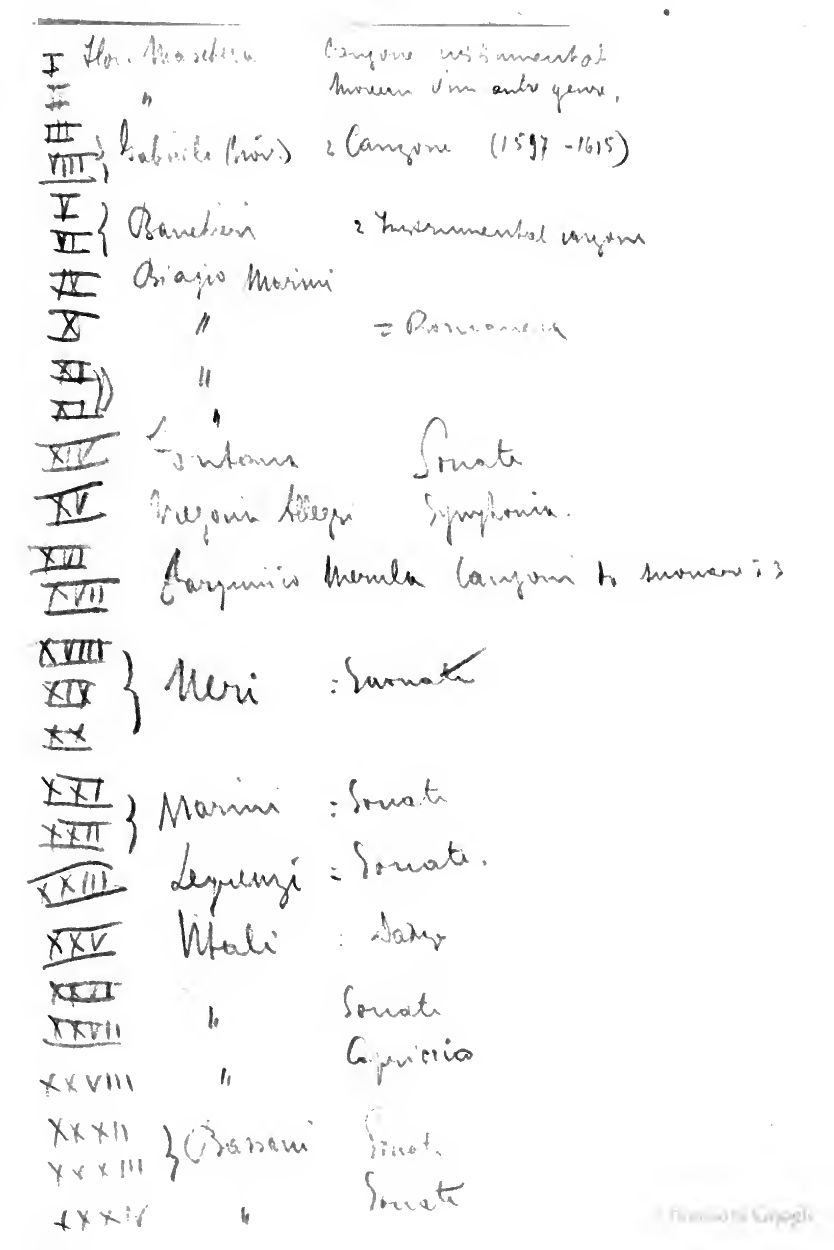 I Flor. Maschera Canzone instrumental
II " morceau d'un autre genre.
III
VIII } Gabriele (Giov.) 2 Canzone (1597-1615)
V
VI } Banchieri 2 Instrumental canzone
IX Biagio Marini
X " = Romanesca
XI "
XI "
XIV Fontana Sonate
XV Gregorio Allegri Symphonia.
XVI
XVII Tarquinio Merula Canzoni
XVIII
XIX
XX } Neri : Suonate
XXI
XXII } Marini : Sonate
XXIII Legrenzi = Sonate.
XXV Vitali :
XXVI
XXVII " Sonate
XXVIII " Capriccio
XXXII
XXXIII } Bassani Sonat.
XXXIV " Sonate
Google